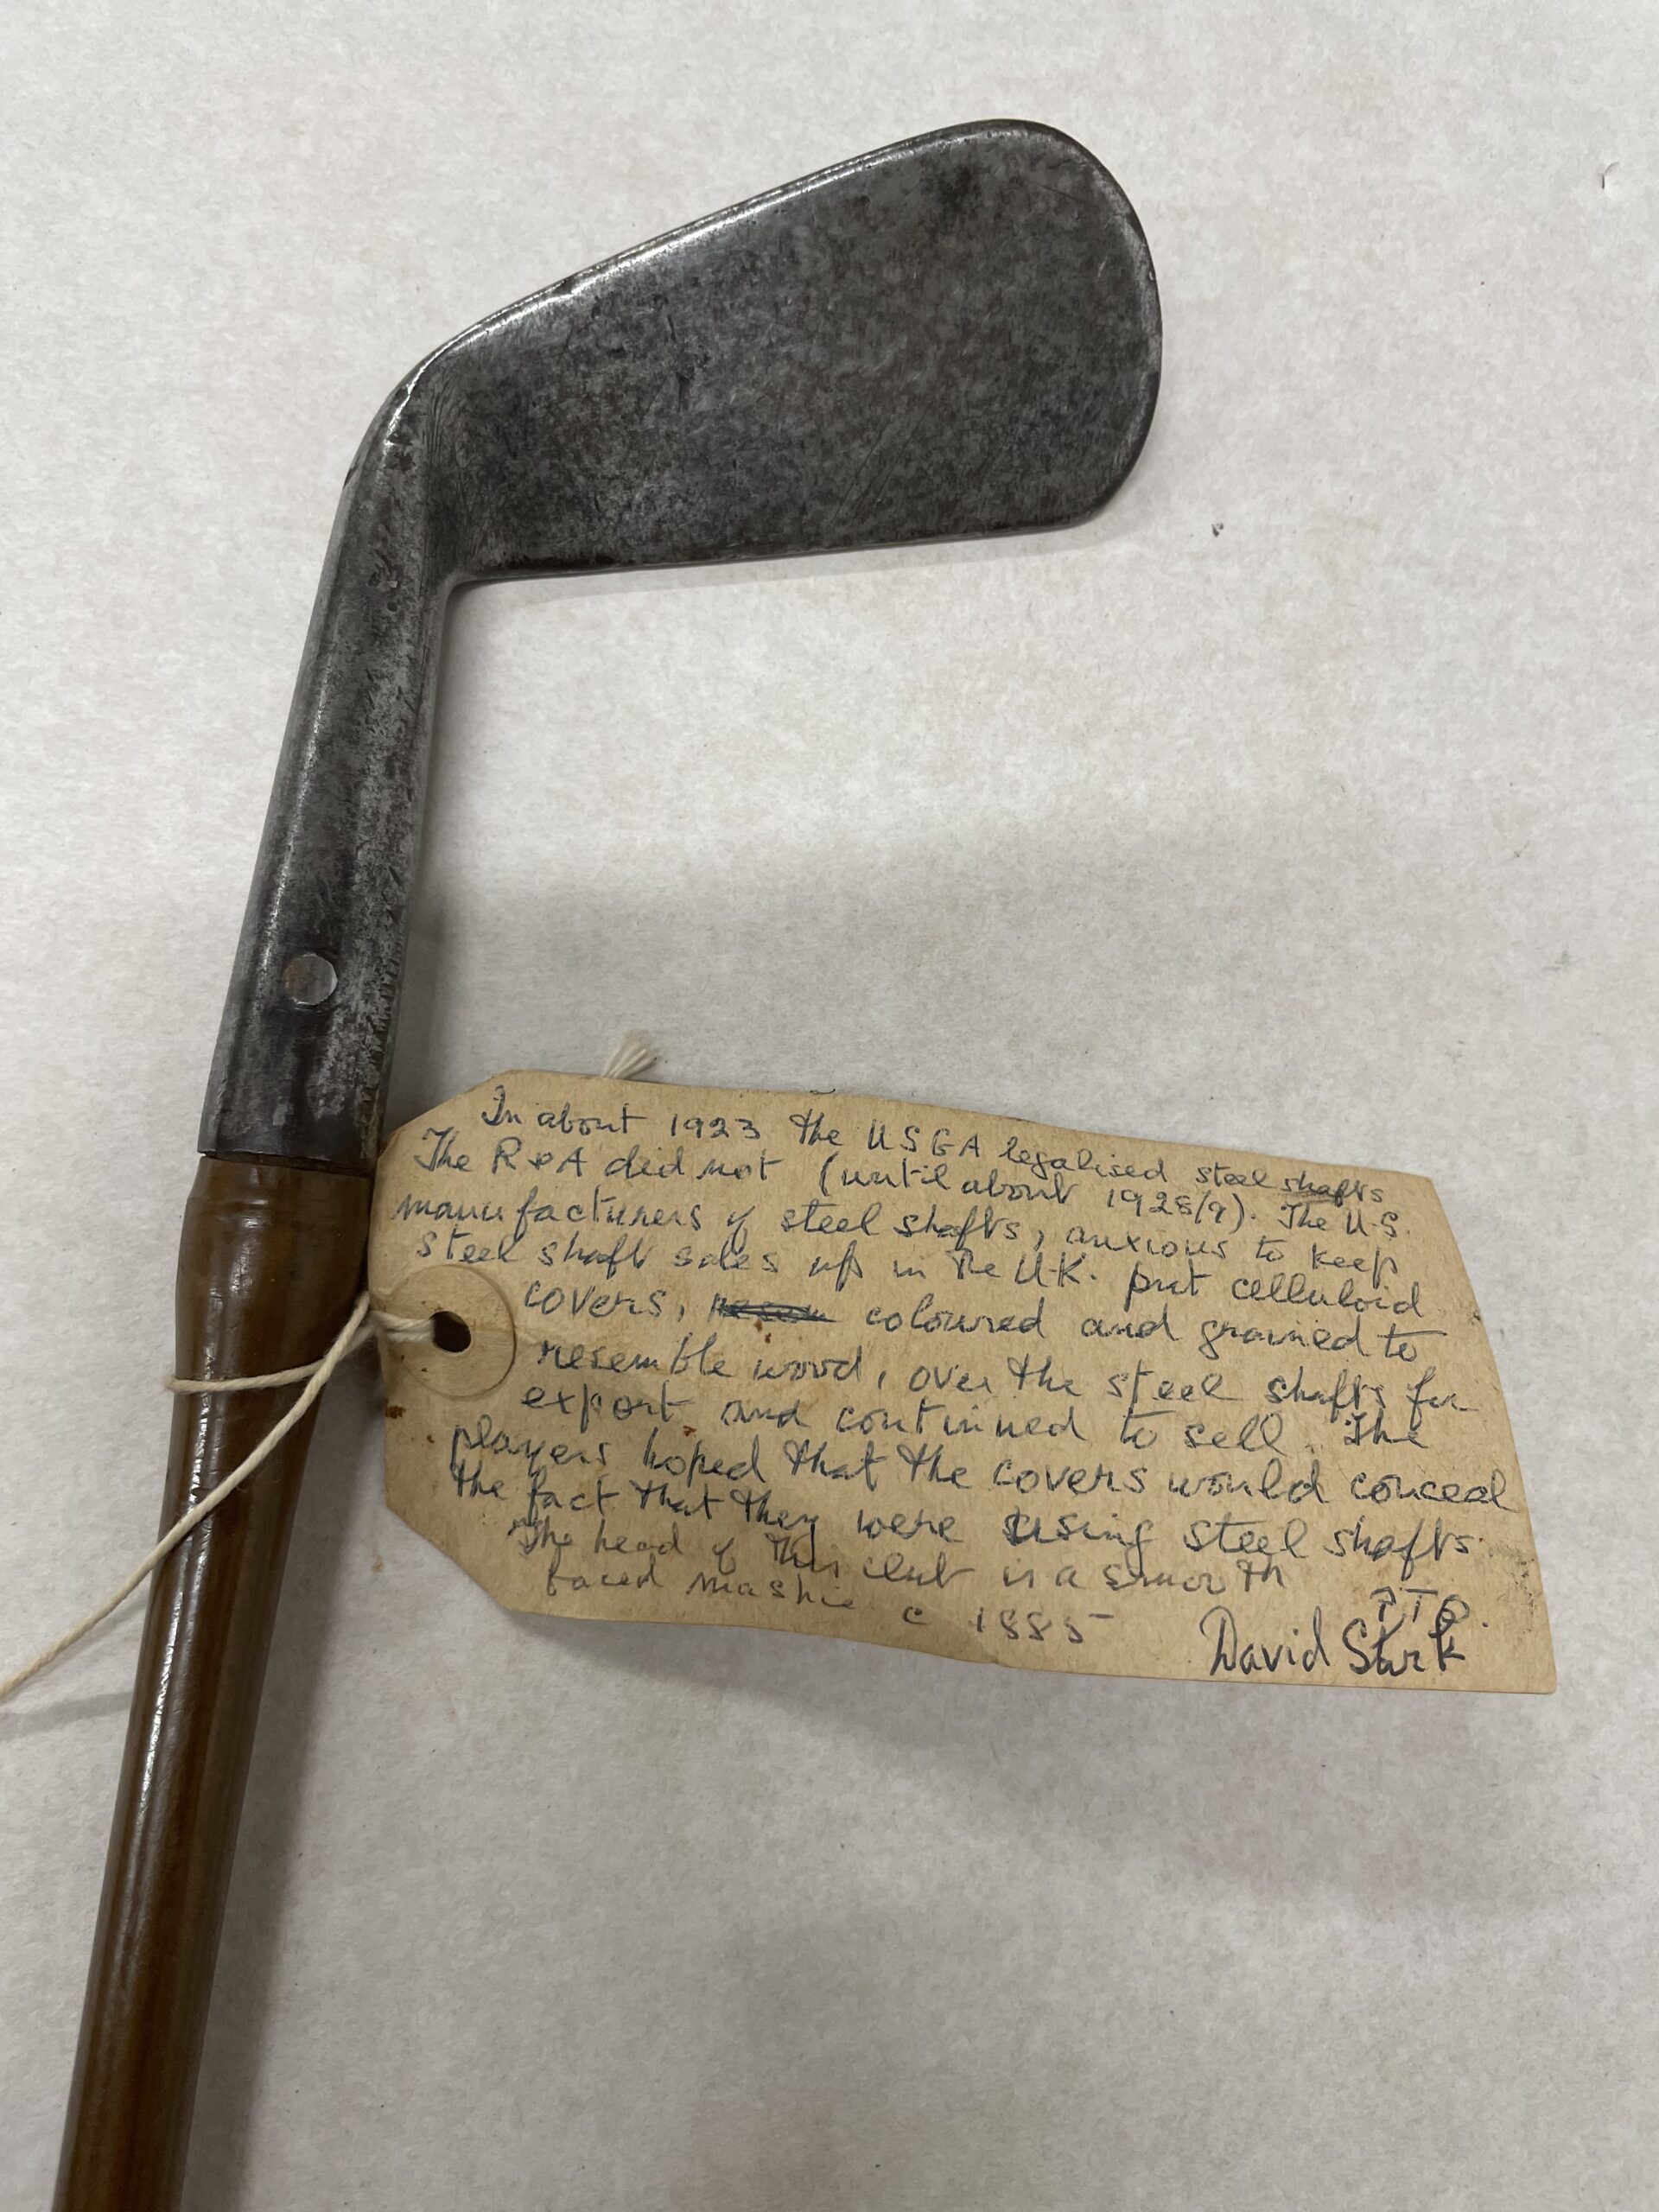 In about 1923 the USGA legalised steel shafts
The R&A did not (until about 1928/9). The U.S.
manufacturers of steel shafts, anxious to keep
steel shaft sales up in the U.K. put celluloid
covers, coloured and grained to
resemble wood, over the steel shafts for
export and continued to sell. The
players hoped that the covers would conceal
the fact that they were using steel shafts.
The head of this club is a smooth
faced mashie c 1885
PTO.
David Stirk